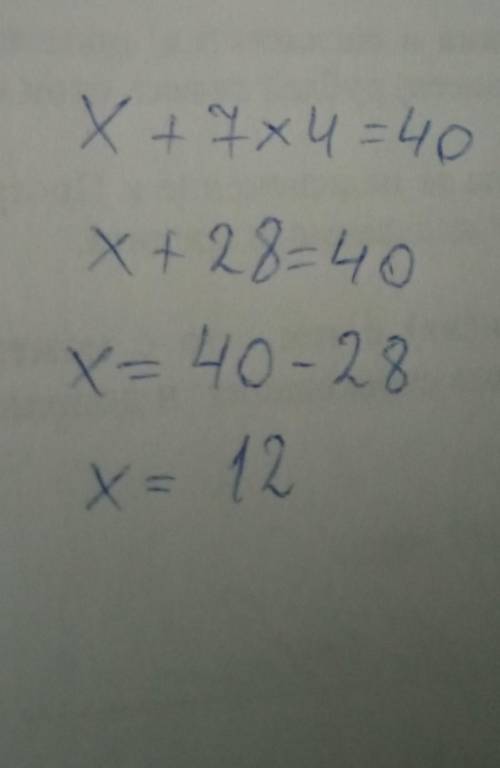 X + 7 × 4 = 40
x + 28 = 40
x = 40 - 28
x = 12